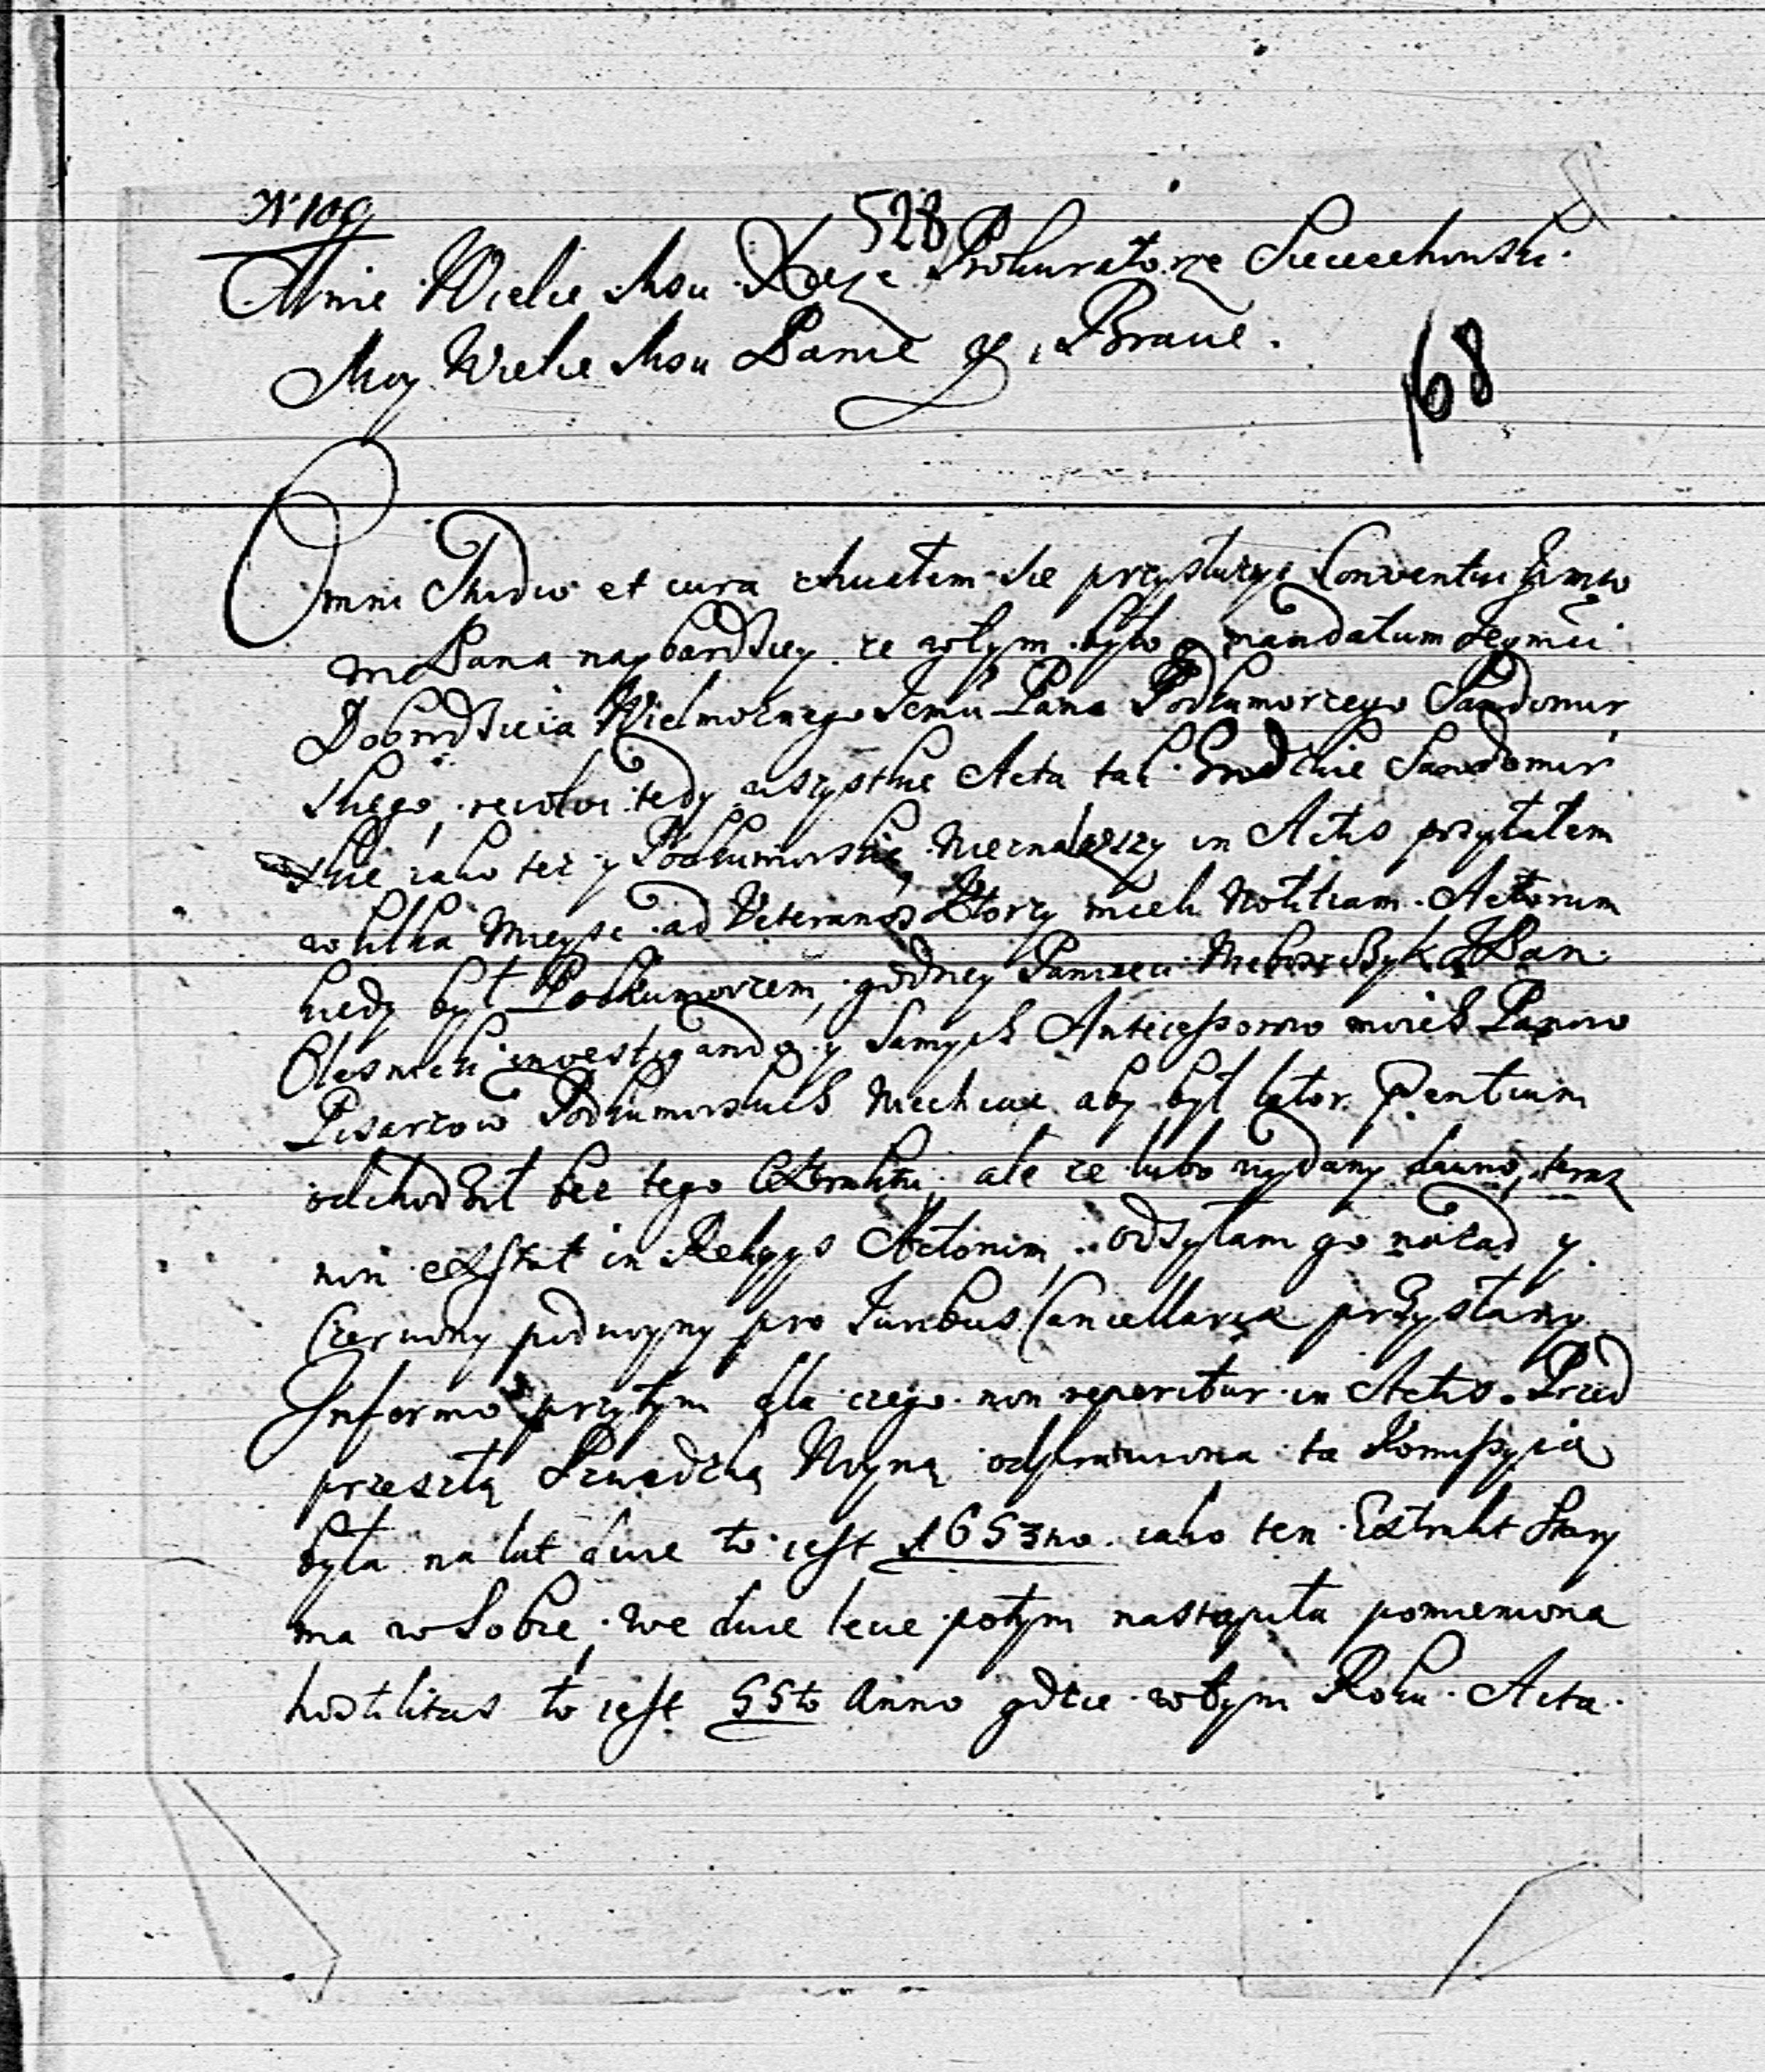 N 109
528
Mnie Wielce Msu Xęze Prokuratorze Sieciechowski.
Moy Wielce Msu Panie y Bracie.
168
Omni Studio et cura chciałem sie przysłuzyc Conventui
m Pana naybardziey ze wtym było mandatum Jegmci
Dobrodzieia Wielmoznego Jemci Pana Podkomorzego Sandomir
skiego, revolvi tedy wszystkie Acta tak Grodzkie Sandomir
skie iako tez y Podkomorskie, Nieznalazszy in Actis przytałem
w kilka Mieysc ad Veteranos Ktorzy mieli Notitiam Actorum
kiedy był Podkomorzem, godney Pamieci Pan
Olesnicki investigando y Samych Antecessorow moich Panow
Pisarzow Podkomorskich Niechcac aby był lator Pentium
odchodził bez tego Extraktu, ale ze lubo wydany dawno, teraz
non exstat in Actorum, odsyłam go nazad y
Czerwony podwoyny pro Juribus Cancellariæ przysłany
Informo przytym dla czego non reperitur in Actis. Przed
przeszłą Szwedzką Woyną odprawiona ta Komissyia
była na lat dwie to iest 1653no iako ten Extrakt Stary
ma w Sobie, we dwie lecie potym nastąpiła pomieniona
hostilitas to iest 55to Anno gdzie wtym Roku Acta